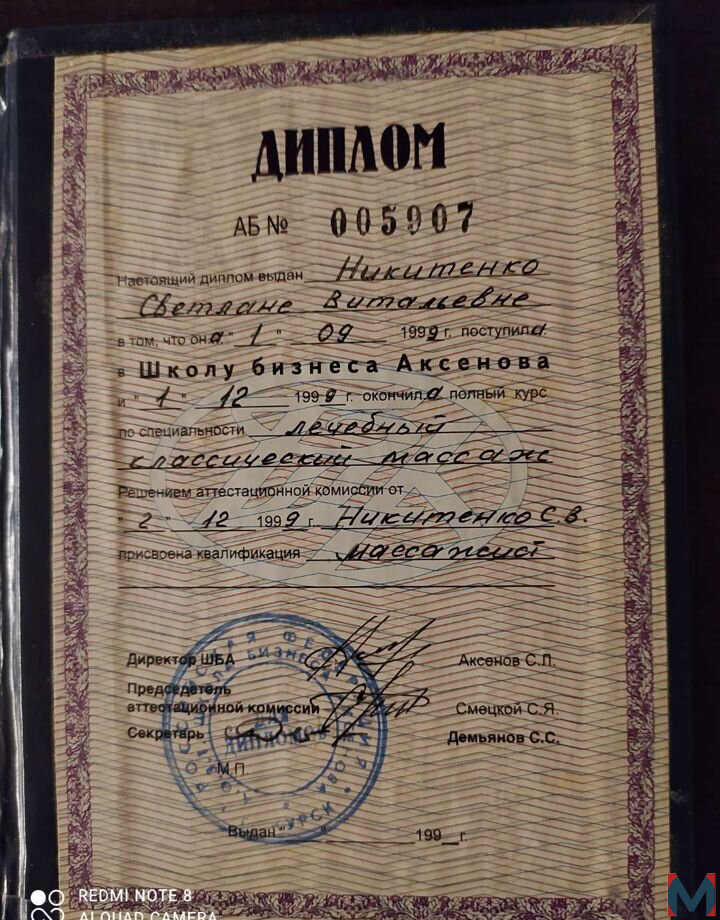 ДИПЛОМ
АБ № 005907
Настоящий диплом выдан Никитенко
Светлане Витальевне
в том, что она "1" 09 1999 г. поступила
в Школу бизнеса Аксенова
и "1" 12 1999 г. окончила полный курс
по специальности лечебный
классический массаж
Решением аттестационной комиссии от
"2" 12 1999 г. Никитенко С.В.
присвоена квалификация массажист
Директор ШБА Аксенов С.Л.
Председатель
аттестационной комиссии Смецкой С.Я.
Секретарь Демьянов С.С.
М.П.
Выдан "__" ________ 199__г.
БИЗНЕСА
ДЛЯ
ДИПЛОМОВ
REDMI NOTE 8
AI QUAD CAMERA
M